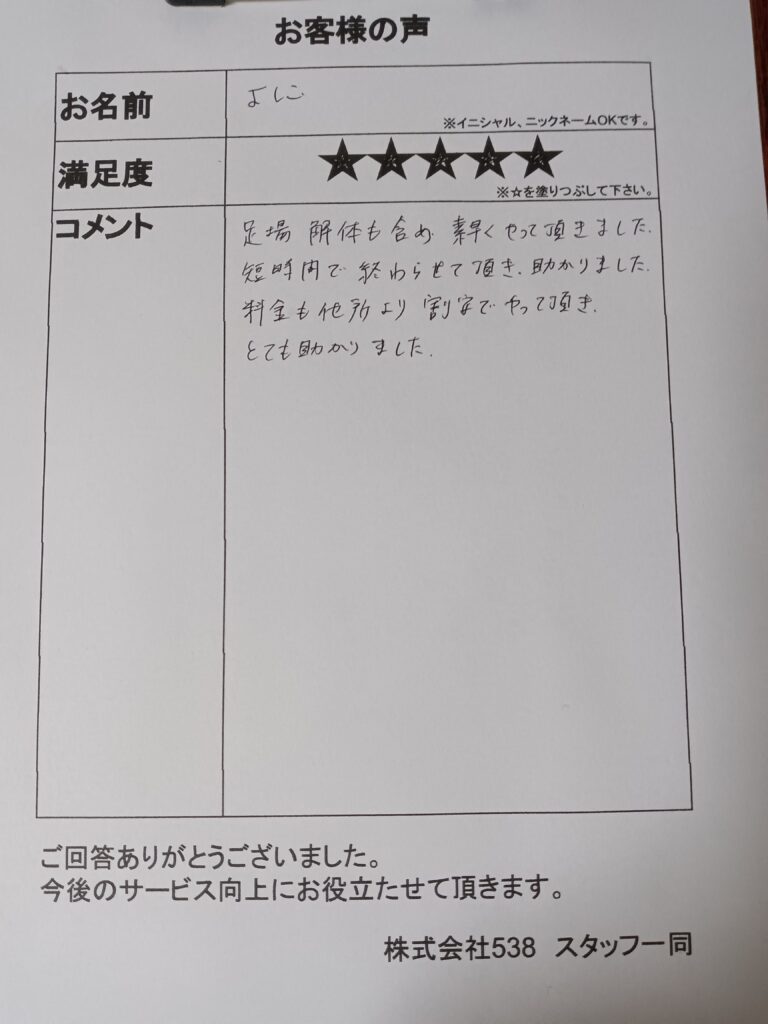 お客様の声
お名前
よしこ
※イニシャル、ニックネームOKです。
満足度
★★★★★
※☆を塗りつぶして下さい。
コメント
足場 解体も含め 素早くやって頂きました.
短時間で終わらせて頂き.助かりました.
料金も他所より割安でやって頂き.
とても助かりました.
ご回答ありがとうございました。
今後のサービス向上にお役立たせて頂きます。
株式会社538 スタッフ一同